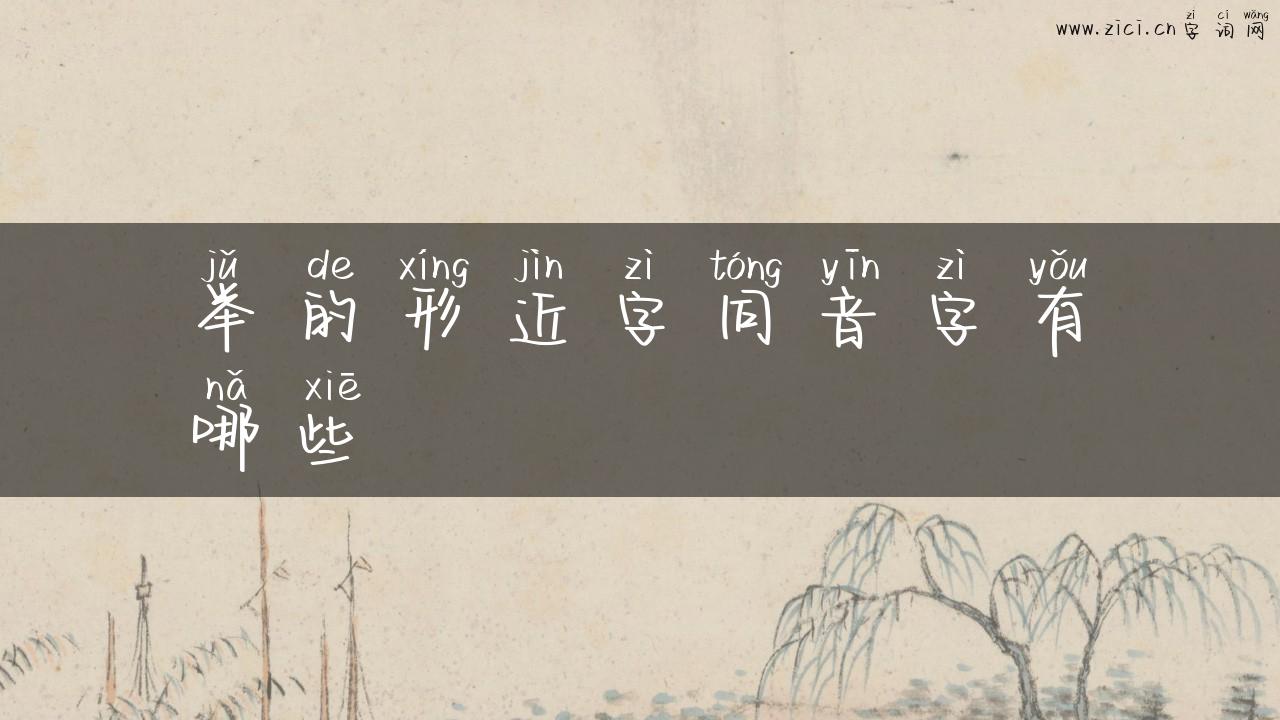 zì cí wǎng
www.zici.cn 字词网
jǔ de xíng jìn zì tóng yīn zì yǒu
举的形近字同音字有
nǎ xiē
哪些